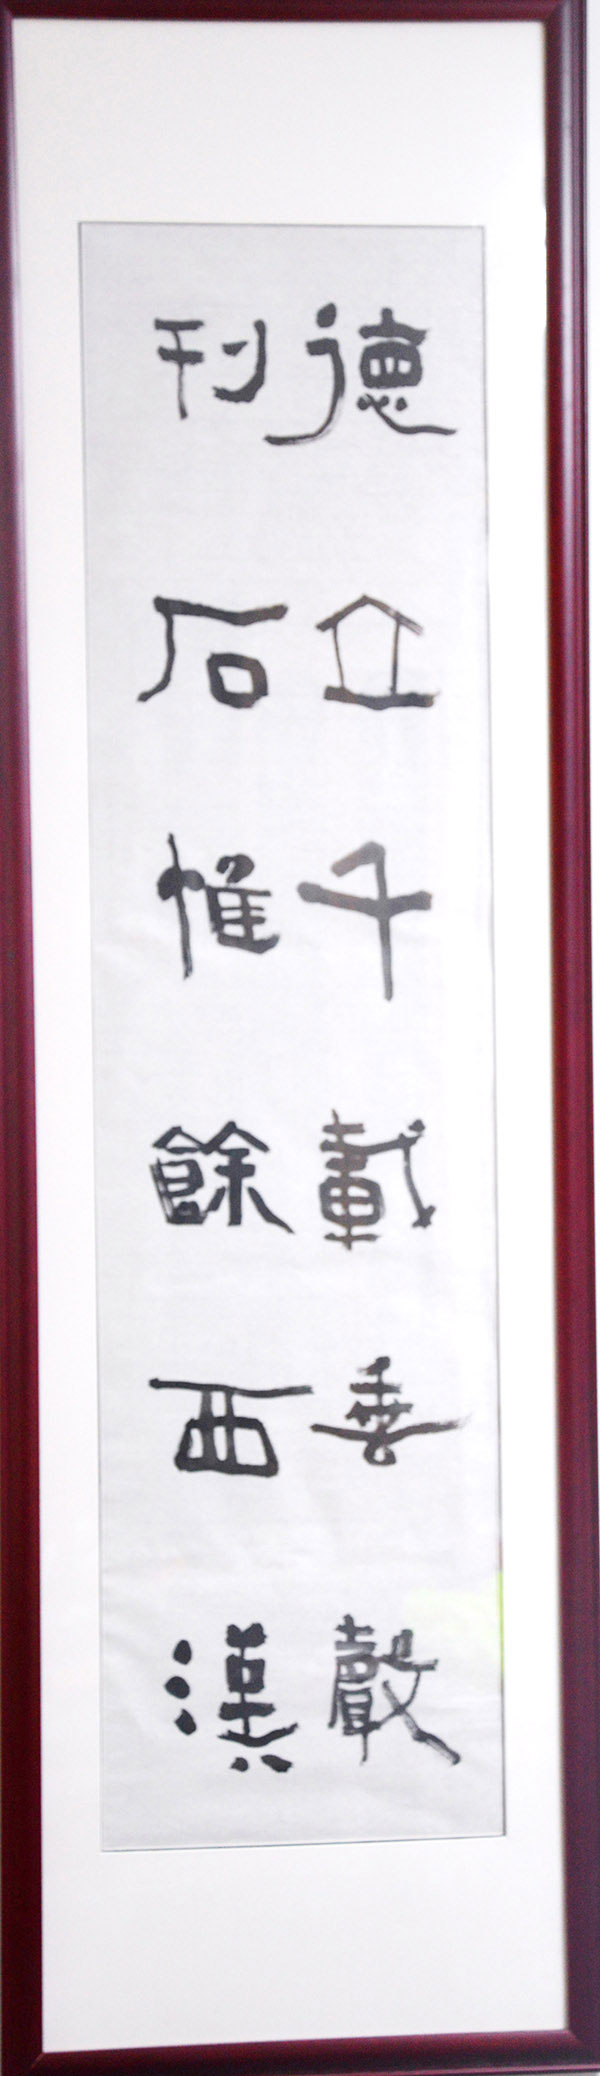 德立千載垂聲
刊石惟餘西漢